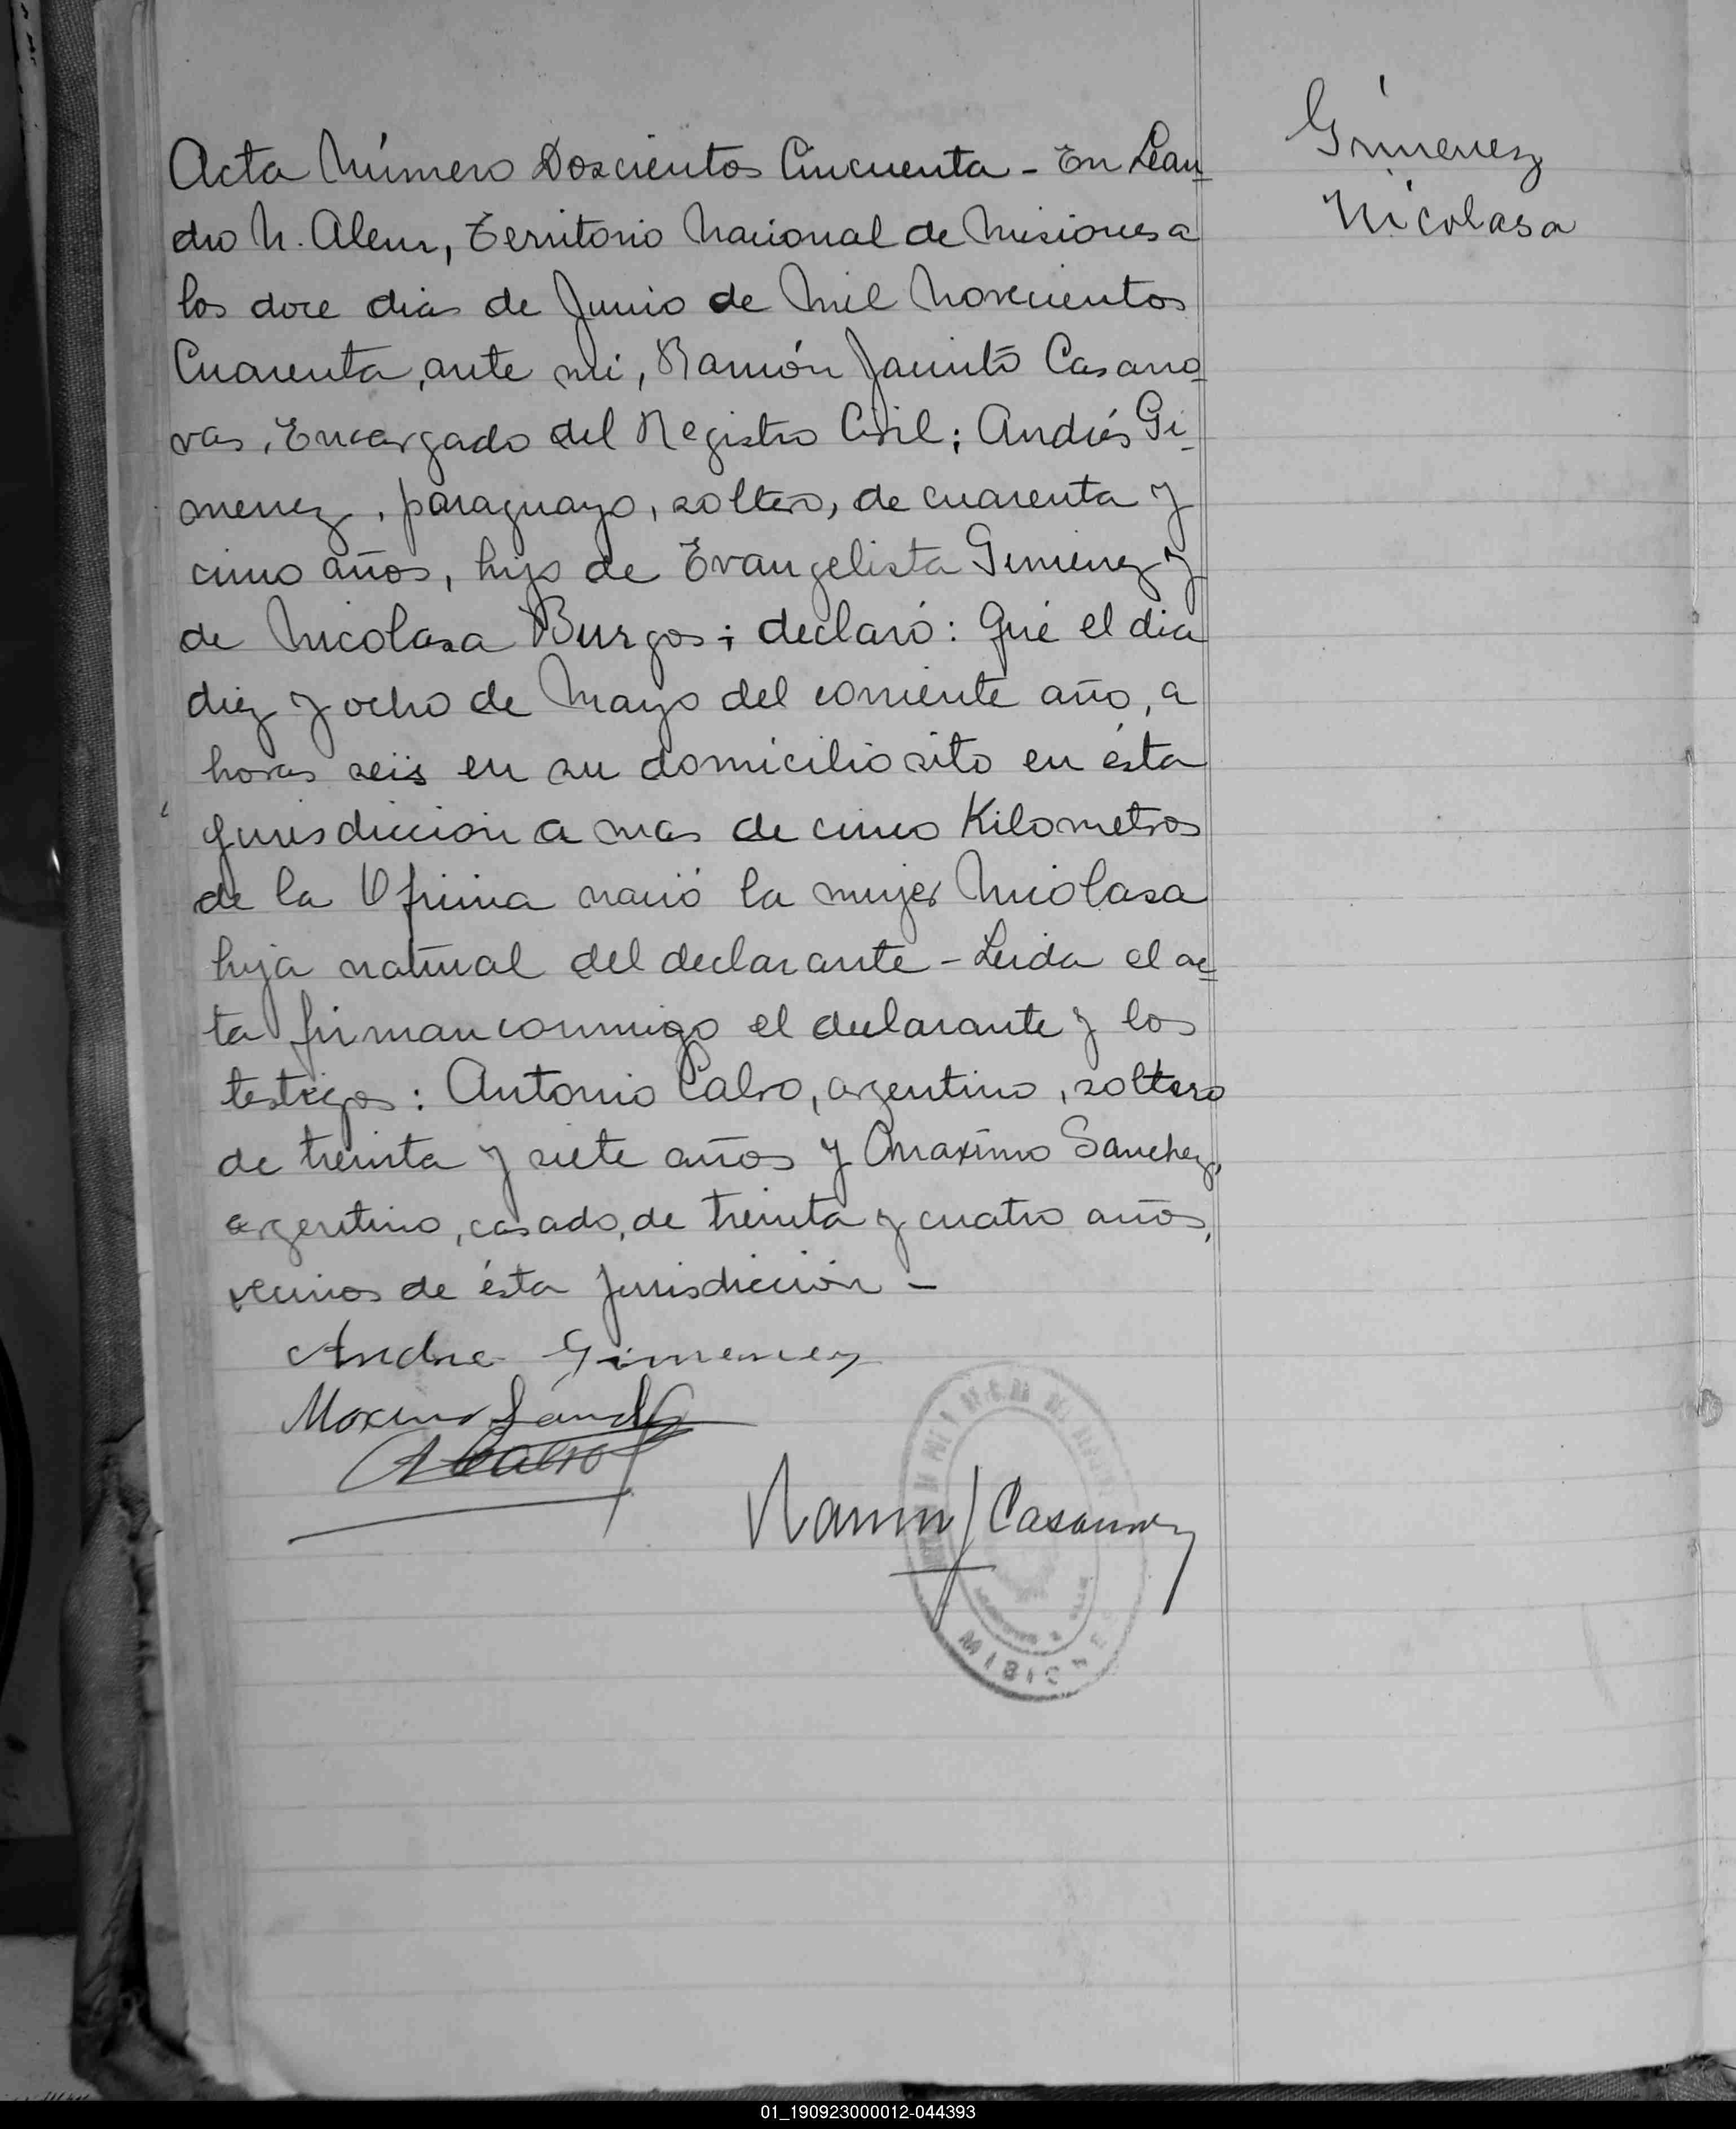 Gimenez
Nicolasa
Acta Número Doscientos Cincuenta - En Lean
dro N. Alem, Territorio Nacional de Misiones a
los doce dias de Junio de Mil Novecientos
Cuarenta, ante mi, Ramón Jacinto Casano
vas, Encargado del Registro Civil; Andrés Gi-
menez, paraguayo, soltero, de cuarenta y
cinco años, hijo de Evangelista Gimenez y
de Nicolasa Burgos; declaró: Qué el dia
diez y ocho de Mayo del corriente año, a
horas seis en su domicilio sito en ésta
jurisdiccion a mas de cinco Kilometros
de la Oficina nació la mujer Nicolasa
hija natural del declarante - Leida el ac
ta firman conmigo el declarante y los
testigos: Antonio Calvo, argentino, soltero
de treinta y siete años y Maximo Sanchez,
argentino, casado, de treinta y cuatro años,
vecinos de ésta Jurisdicción -
Andre Gimenez
Maximo Sanchez
A Calvo
Ramon J Casanovas
MISIONES
01_190923000012-044393